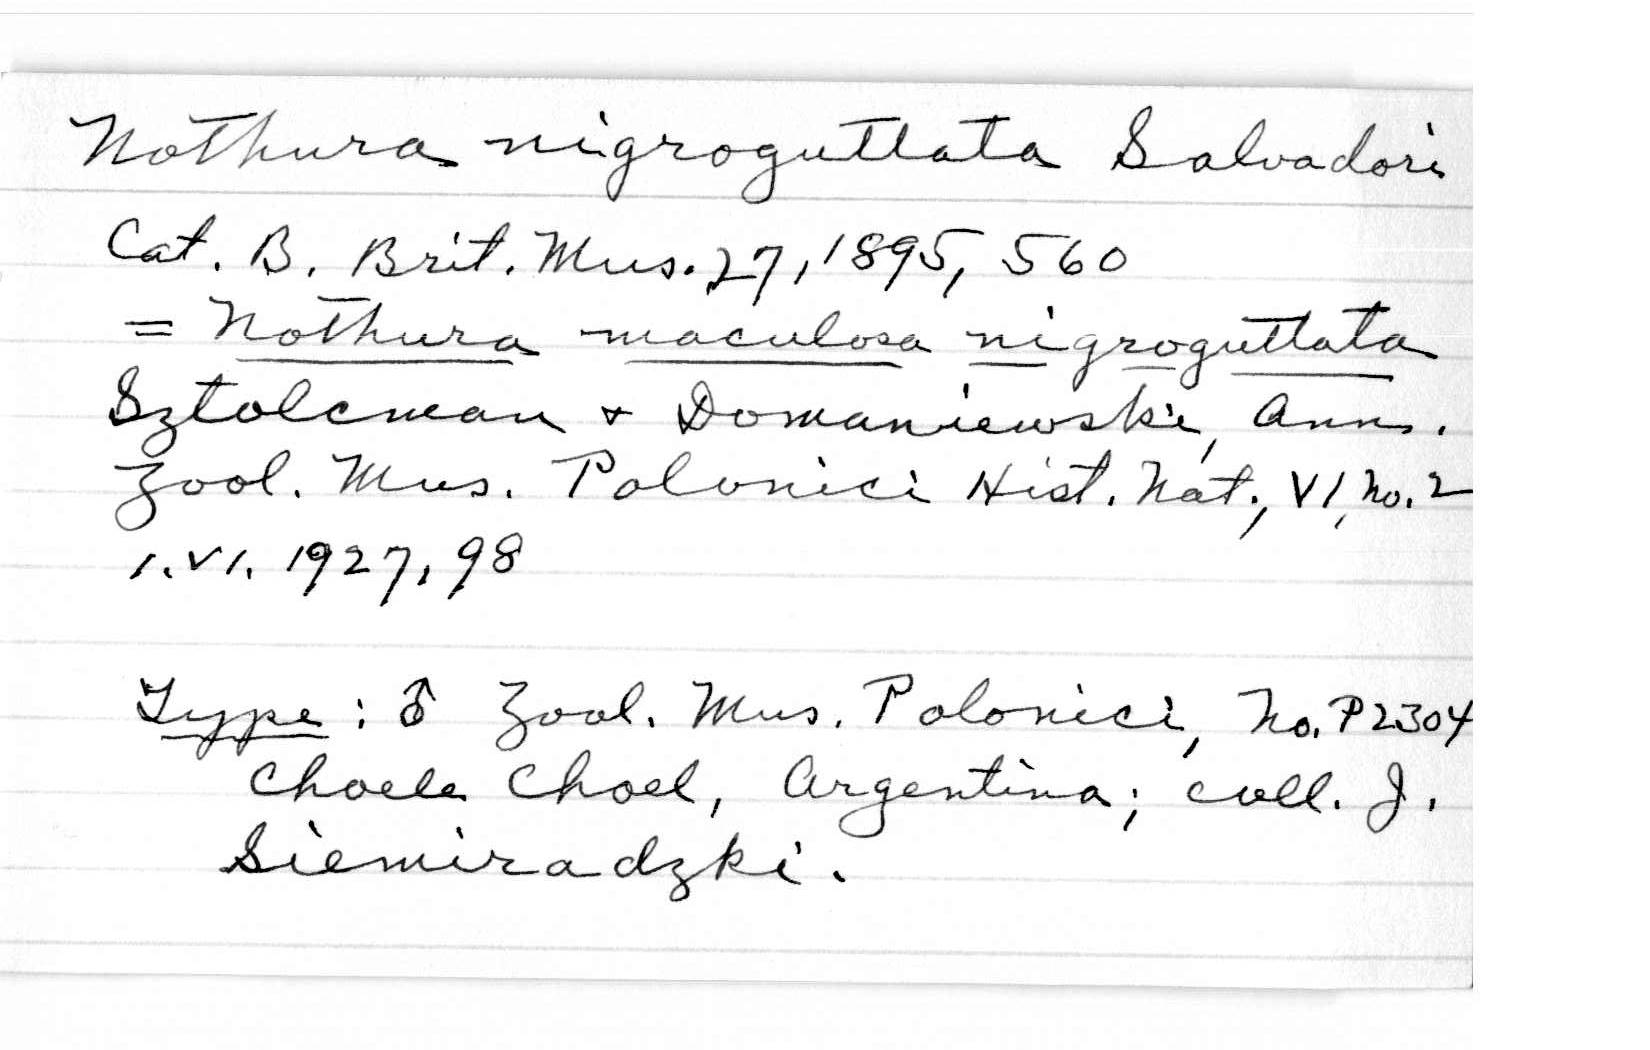 Nothura nigroguttata Salvadori
Cat. B. Brit. Mus. 27, 1895, 560
= Nothura maculosa nigroguttata
Sztolcman & Domaniewski, Ann.
Zool. Mus. Polonici Hist. Nat., VI, no. 2
1.VI. 1927, 98
Type: ♂ Zool. Mus. Polonici, No. P2304
Choele Choel, Argentina; coll. J.
Siemiradzki.